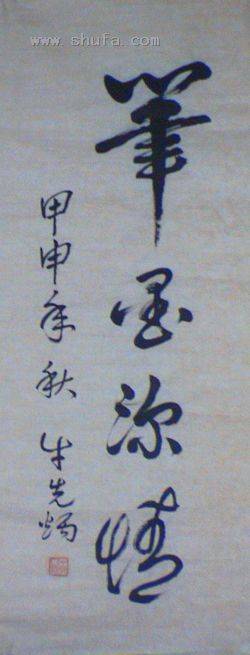 www.shufa.com
筆墨深情
甲申年秋 牛先